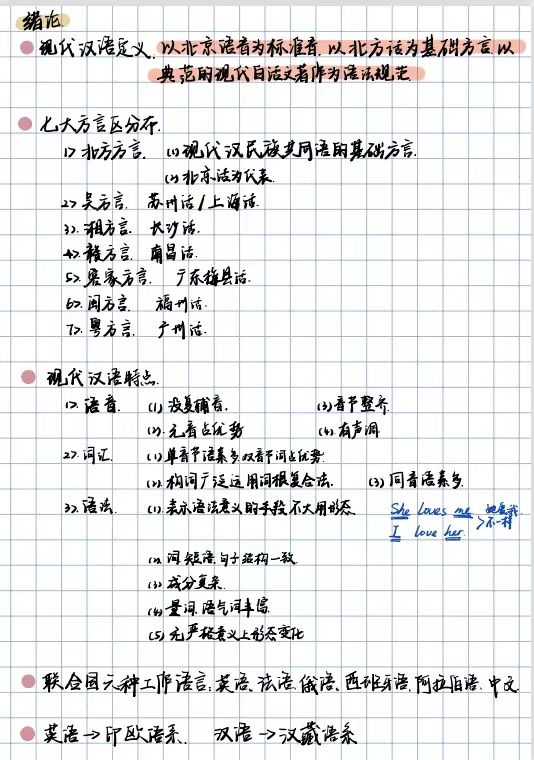 绪论
现代汉语定义. 以北京语音为标准音.以北方话为基础方言.以
典范的现代白话文著作为语法规范
七大方言区分布.
1>北方方言. (1)现代汉民族共同语的基础方言.
(2)北京话为代表.
2>吴方言. 苏州话/上海话.
3>湘方言. 长沙话.
4>赣方言. 南昌话.
5>客家方言. 广东梅县话.
6>闽方言. 福州话.
7>粤方言. 广州话.
现代汉语特点.
1>语音. (1)没复辅音. (3)音节整齐.
(2)元音占优势 (4)有声调
2>词汇. (1)单音节语素多.双音节词占优势.
(2)构词广泛运用词根复合法. (3)同音语素多.
3>语法. (1)表示语法意义的手段不大用形态. She loves me 她爱我
I love her >不一样
(2)词.短语.句子结构一致
(3)成分复杂
(4)量词.语气词丰富
(5)无严格意义上形态变化
联合国六种工作语言:英语.法语.俄语.西班牙语.阿拉伯语.中文
英语→印欧语系. 汉语→汉藏语系